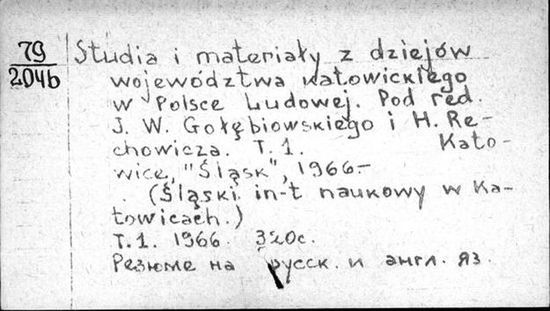 79
204б
Studia i materiały z dziejów
województwa katowickiego
w Polsce Ludowej. Pod red.
J. W. Gołębiowskiego i H. Re-
chowicza. T. 1. Kato-
wice, "Śląsk", 1966-
(Śląski in-t naukowy w Ka-
towicach.)
T. 1. 1966. 320с.
Резюме на русск. и англ. яз.